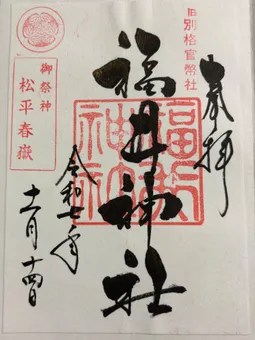 奉拝
旧別格官幣社
福井神社
福井
神社
令和七年
十一月十四日
御祭神
松平春嶽